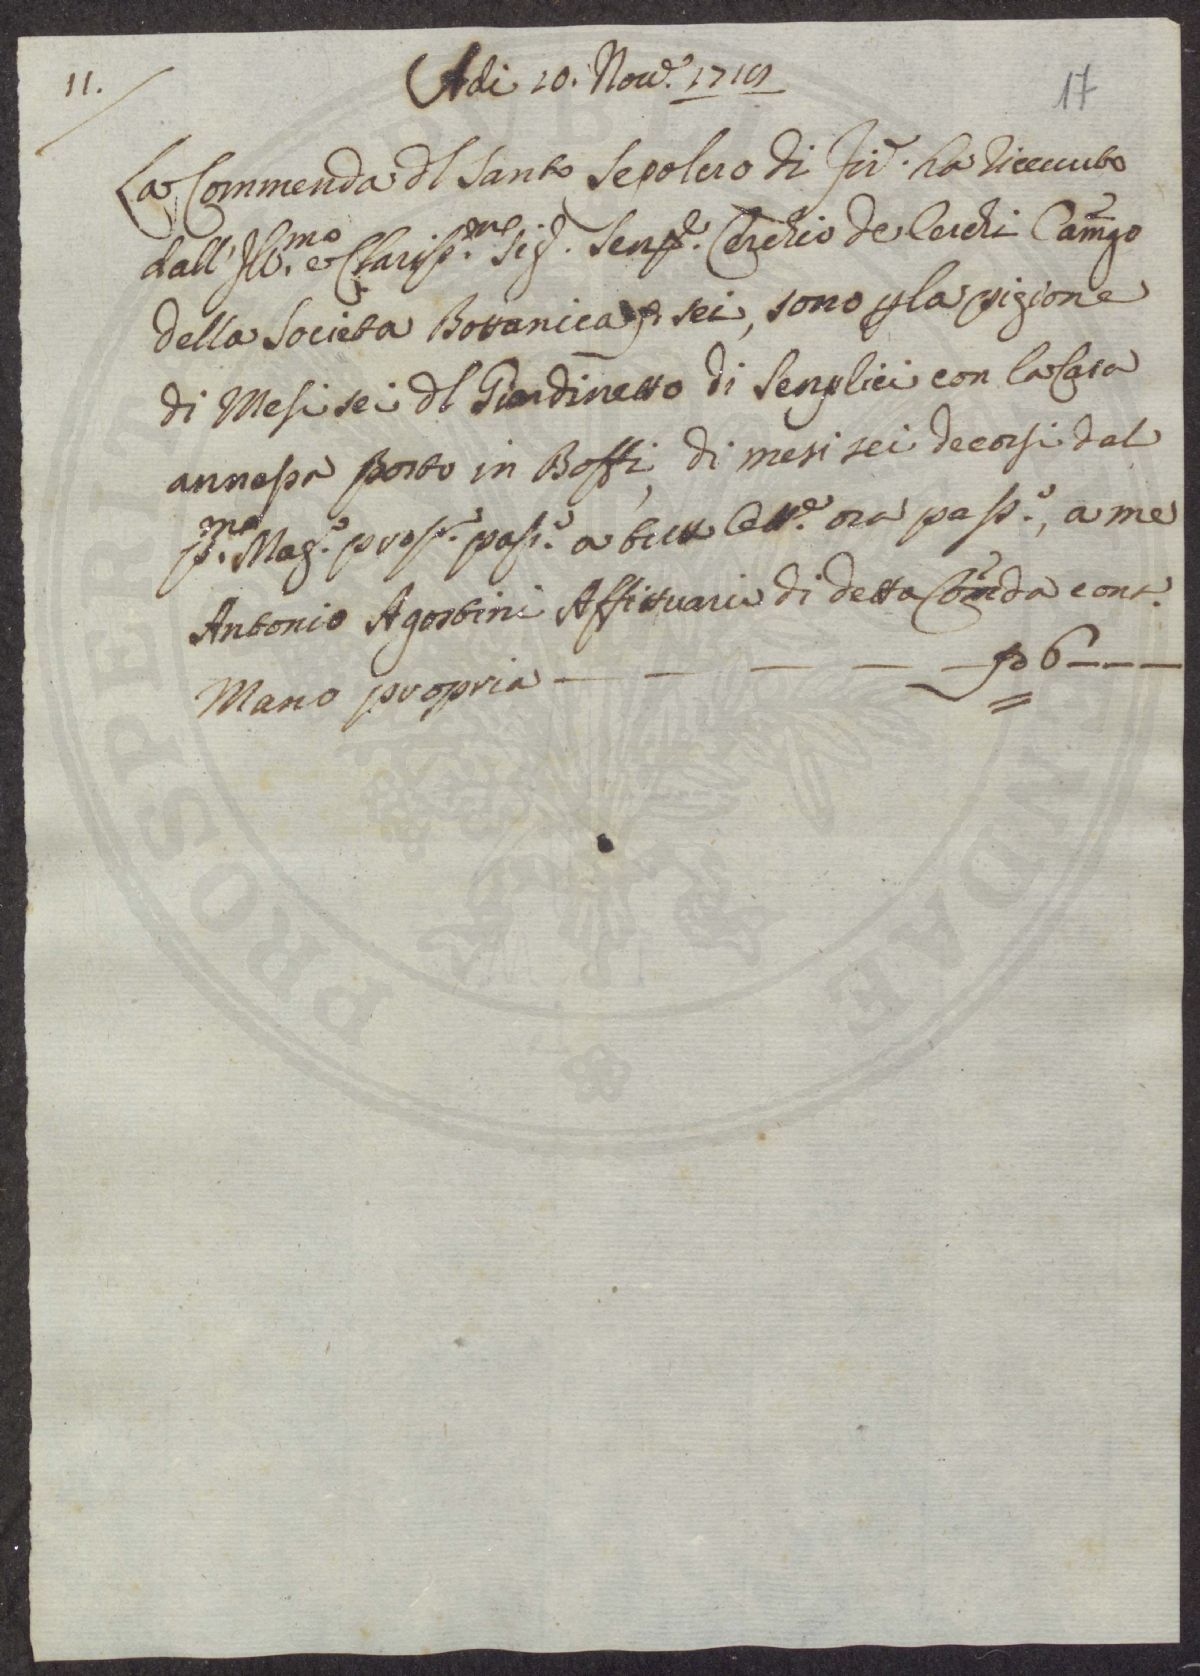 11.
17
Adi 10. Nov.e 1719
La Commenda dl Santo Sepolcro di Fir.e ha riceuuto
dall' Ill.mo e Clariss.mo Sig. Sen.e Cerchio de Cerchi Camgo
della Società Bottanica p sei, sono p la pigione
di Mesi sei dl Giardinetto di Senplici con la Casa
annessa posto in Boffi, di mesi sei decorsi dal
p.mo Mag.o pros.o pass.o a tutt' Ott.e ora pass.o, a me
Antonio Agostini Affittuario di detta Comda cont.
Mano propria — — — — — p 6 — — —
PROSPERAE PUBLI